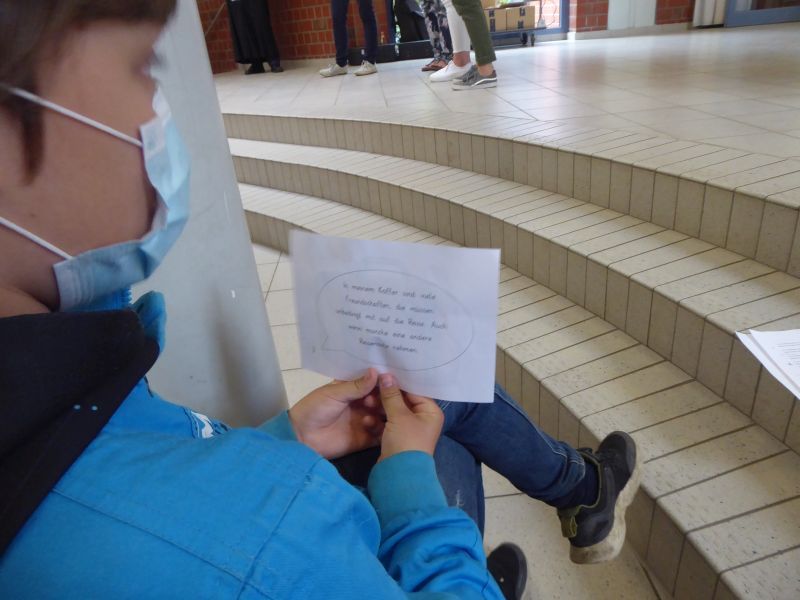 In meinem Koffer sind viele
Freundschaften, die müssen
unbedingt mit auf die Reise. Auch
wenn manche eine andere
Reiseroute nehmen.